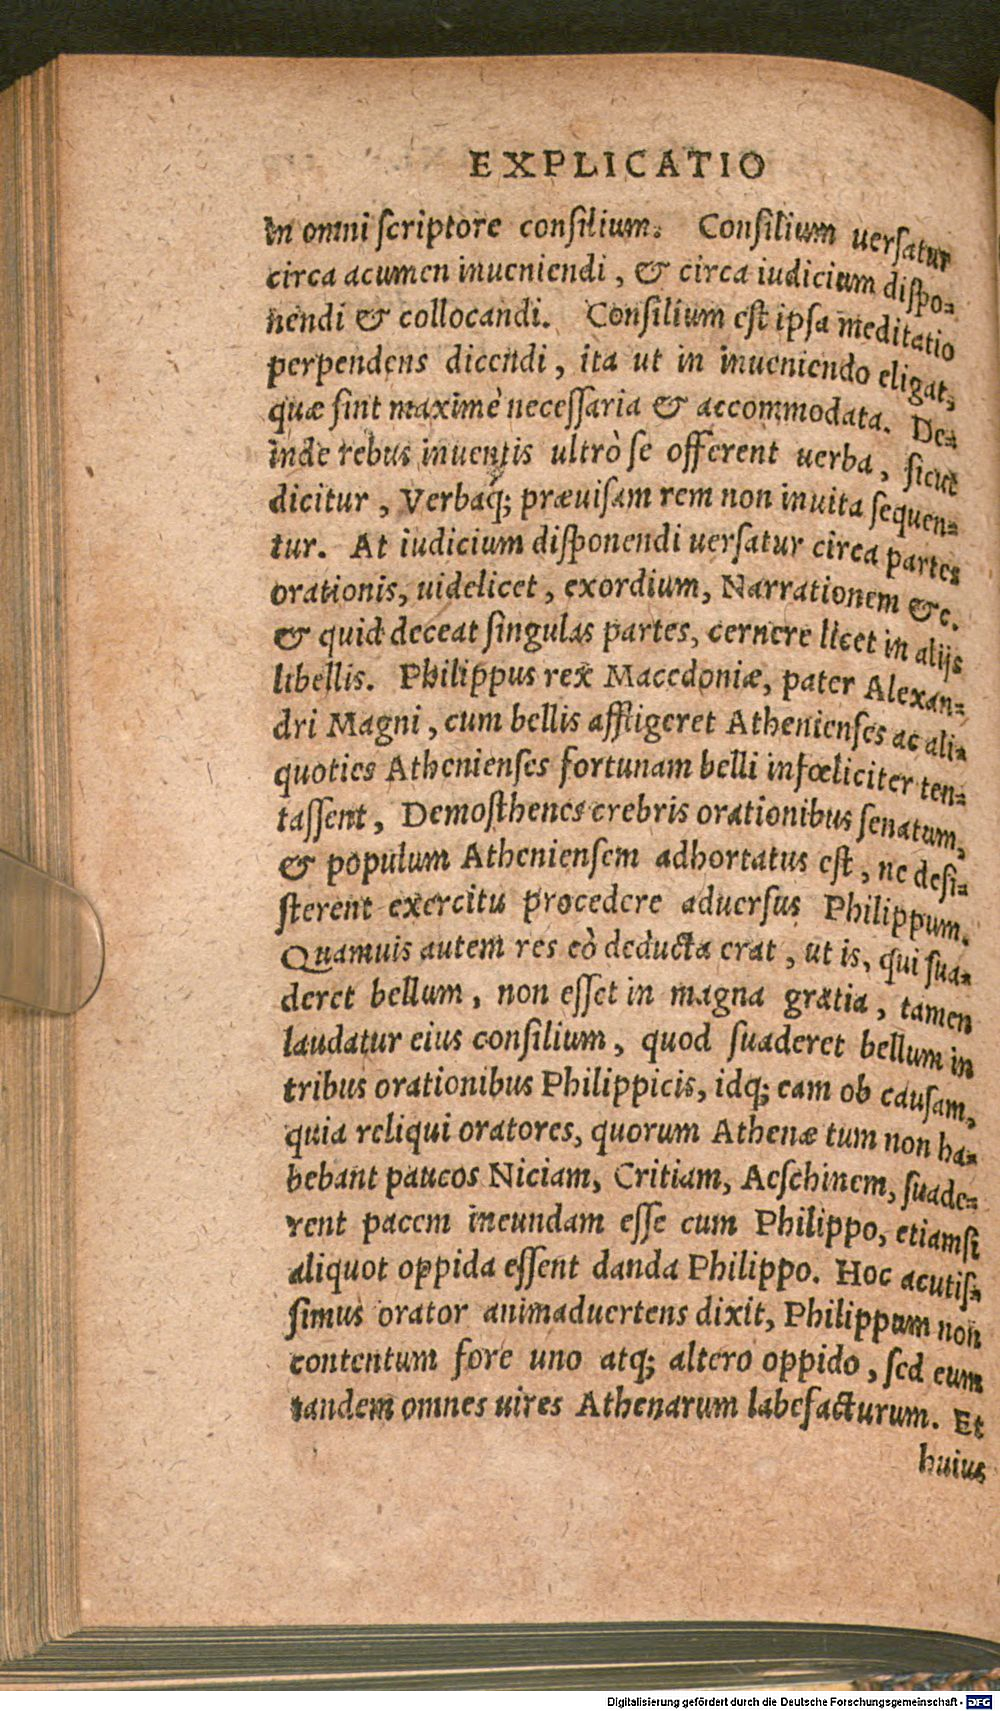 EXPLICATIO
in omni ſcriptore conſilium. Conſilium uerſatur
circa acumen inueniendi, & circa iudicium diſpo-
nendi & collocandi. Conſilium eſt ipſa meditatio
perpendens dicendi, ita ut in inueniendo eligat,
quæ ſint maximè neceſſaria & accommodata. De-
inde rebus inuentis ultrò ſe offerent uerba, ſicut
dicitur, Verbaq; præuiſam rem non inuita ſequen-
tur. At iudicium diſponendi uerſatur circa partes
orationis, uidelicet, exordium, Narrationem &c.
& quid deceat ſingulas partes, cernere licet in alijs
libellis. Philippus rex Macedoniæ, pater Alexan-
dri Magni, cum bellis affligeret Athenienſes ac ali-
quoties Athenienſes fortunam belli infœliciter ten-
taſſent, Demoſthenes crebris orationibus ſenatum,
& populum Athenienſem adhortatus eſt, ne deſi-
ſterent exercitu procedere aduerſus Philippum.
Quamuis autem res eò deducta erat, ut is, qui ſua-
deret bellum, non eſſet in magna gratia, tamen
laudatur eius conſilium, quod ſuaderet bellum in
tribus orationibus Philippicis, idq; eam ob cauſam,
quia reliqui oratores, quorum Athenæ tum non ha-
bebant paucos Niciam, Critiam, Aeſchinem, ſuade-
rent pacem ineundam eſſe cum Philippo, etiamſi
aliquot oppida eſſent danda Philippo. Hoc acutiſ-
ſimus orator animaduertens dixit, Philippum non
contentum fore uno atq; altero oppido, ſed eum
tandem omnes uires Athenarum labefacturum. Et
huius
Digitalisierung gefördert durch die Deutsche Forschungsgemeinschaft - DFG